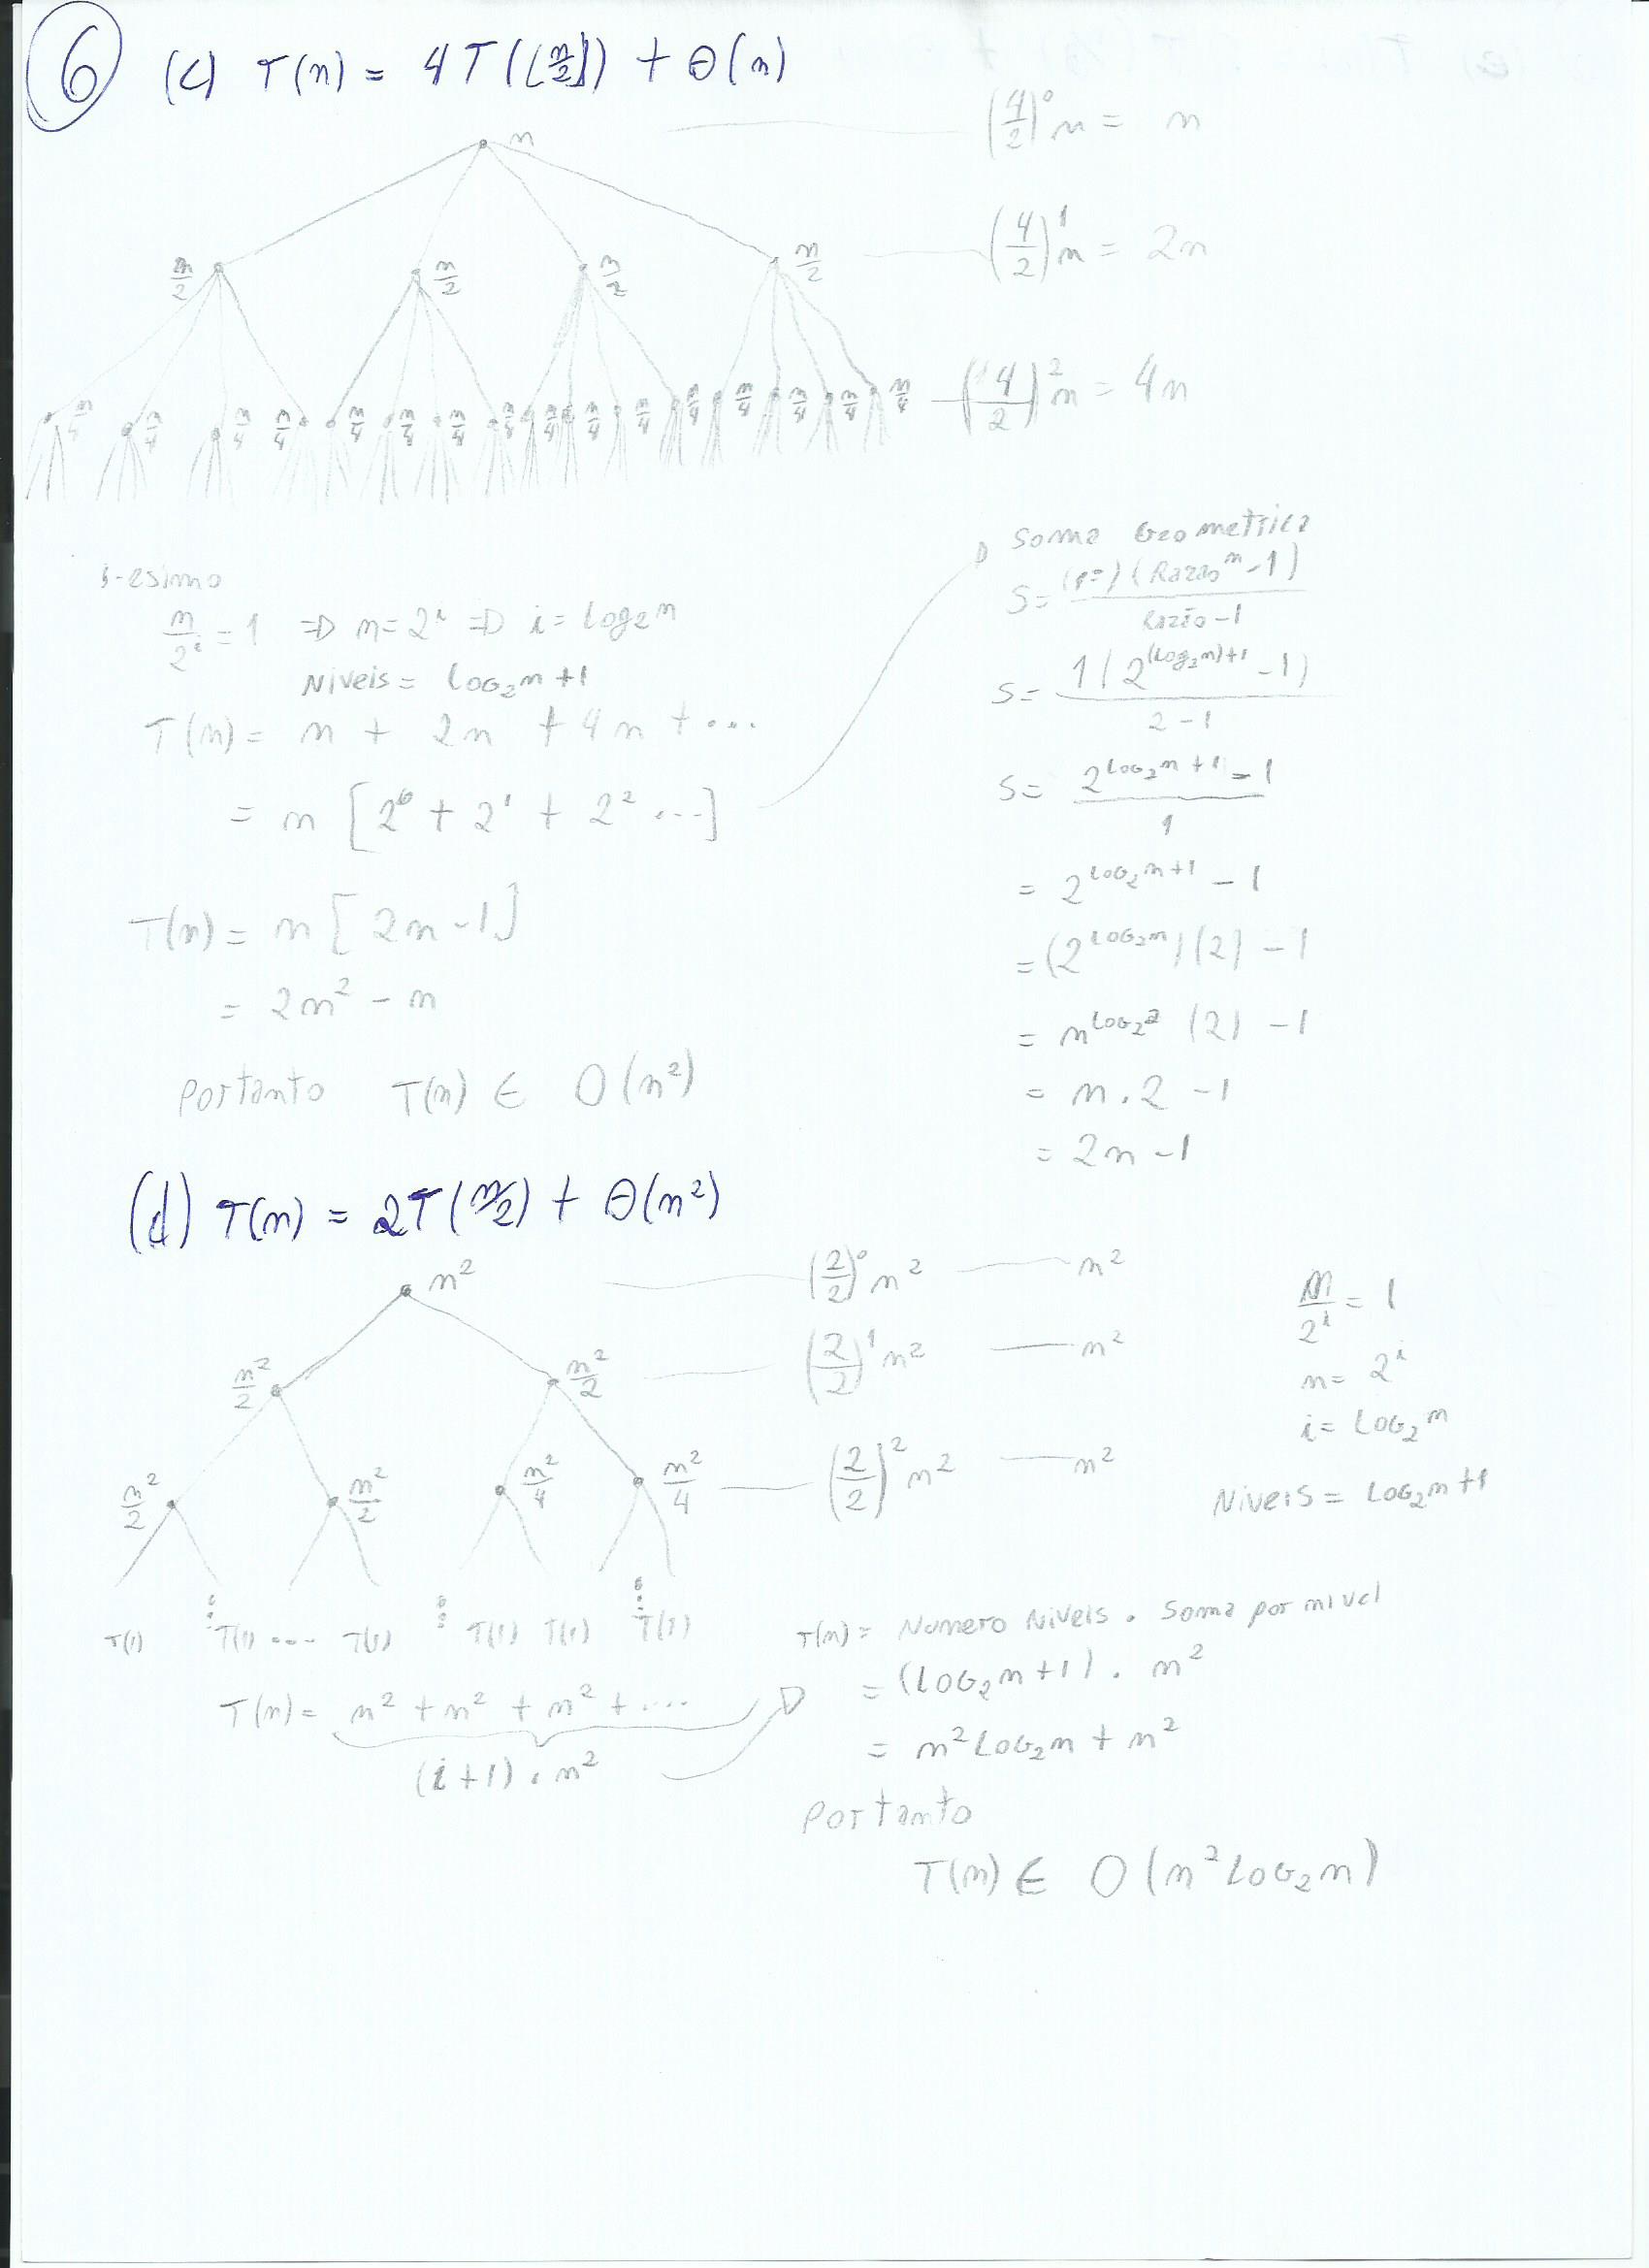 6 (c) T(n) = 4T(⌊n/2⌋) + Θ(n)
n
(4/2)⁰ n = n
n/2 n/2 n/2 n/2
(4/2)¹ n = 2n
n/4 n/4 n/4 n/4 n/4 n/4 n/4 n/4 n/4 n/4 n/4 n/4 n/4 n/4 n/4 n/4
(4/2)² n = 4n
i-esimo
n/2ⁱ = 1 ⇒ n = 2ⁱ ⇒ i = Log₂n
Niveis = Log₂n + 1
T(n) = n + 2n + 4n + ...
= n [2⁰ + 2¹ + 2² ...]
T(n) = n [2n - 1]
= 2n² - n
Portanto T(n) ∈ O(n²)
Soma Geometrica
S = (Razaoⁿ - 1) / Razão - 1
S = 1(2^((Log₂n)+1) - 1) / 2 - 1
S = 2^(Log₂n + 1) - 1 / 1
= 2^(Log₂n+1) - 1
= (2^(Log₂n)) (2) - 1
= n^(Log₂2) (2) - 1
= n . 2 - 1
= 2n - 1
(d) T(n) = 2T(n/2) + Θ(n²)
n²
(2/2)⁰ n² — n²
n²/2 n²/2
(2/2)¹ n² — n²
n²/2 n²/2 n²/4 n²/4
(2/2)² n² — n²
T(1) T(1) ... T(1) T(1) T(1) T(1)
n/2ⁱ = 1
n = 2ⁱ
i = Log₂n
Niveis = Log₂n + 1
T(n) = n² + n² + n² + ....
(i + 1) . n²
T(n) = Numero Niveis . Soma por nivel
= (Log₂n + 1) . n²
= n² Log₂n + n²
Portanto
T(n) ∈ O(n² Log₂n)